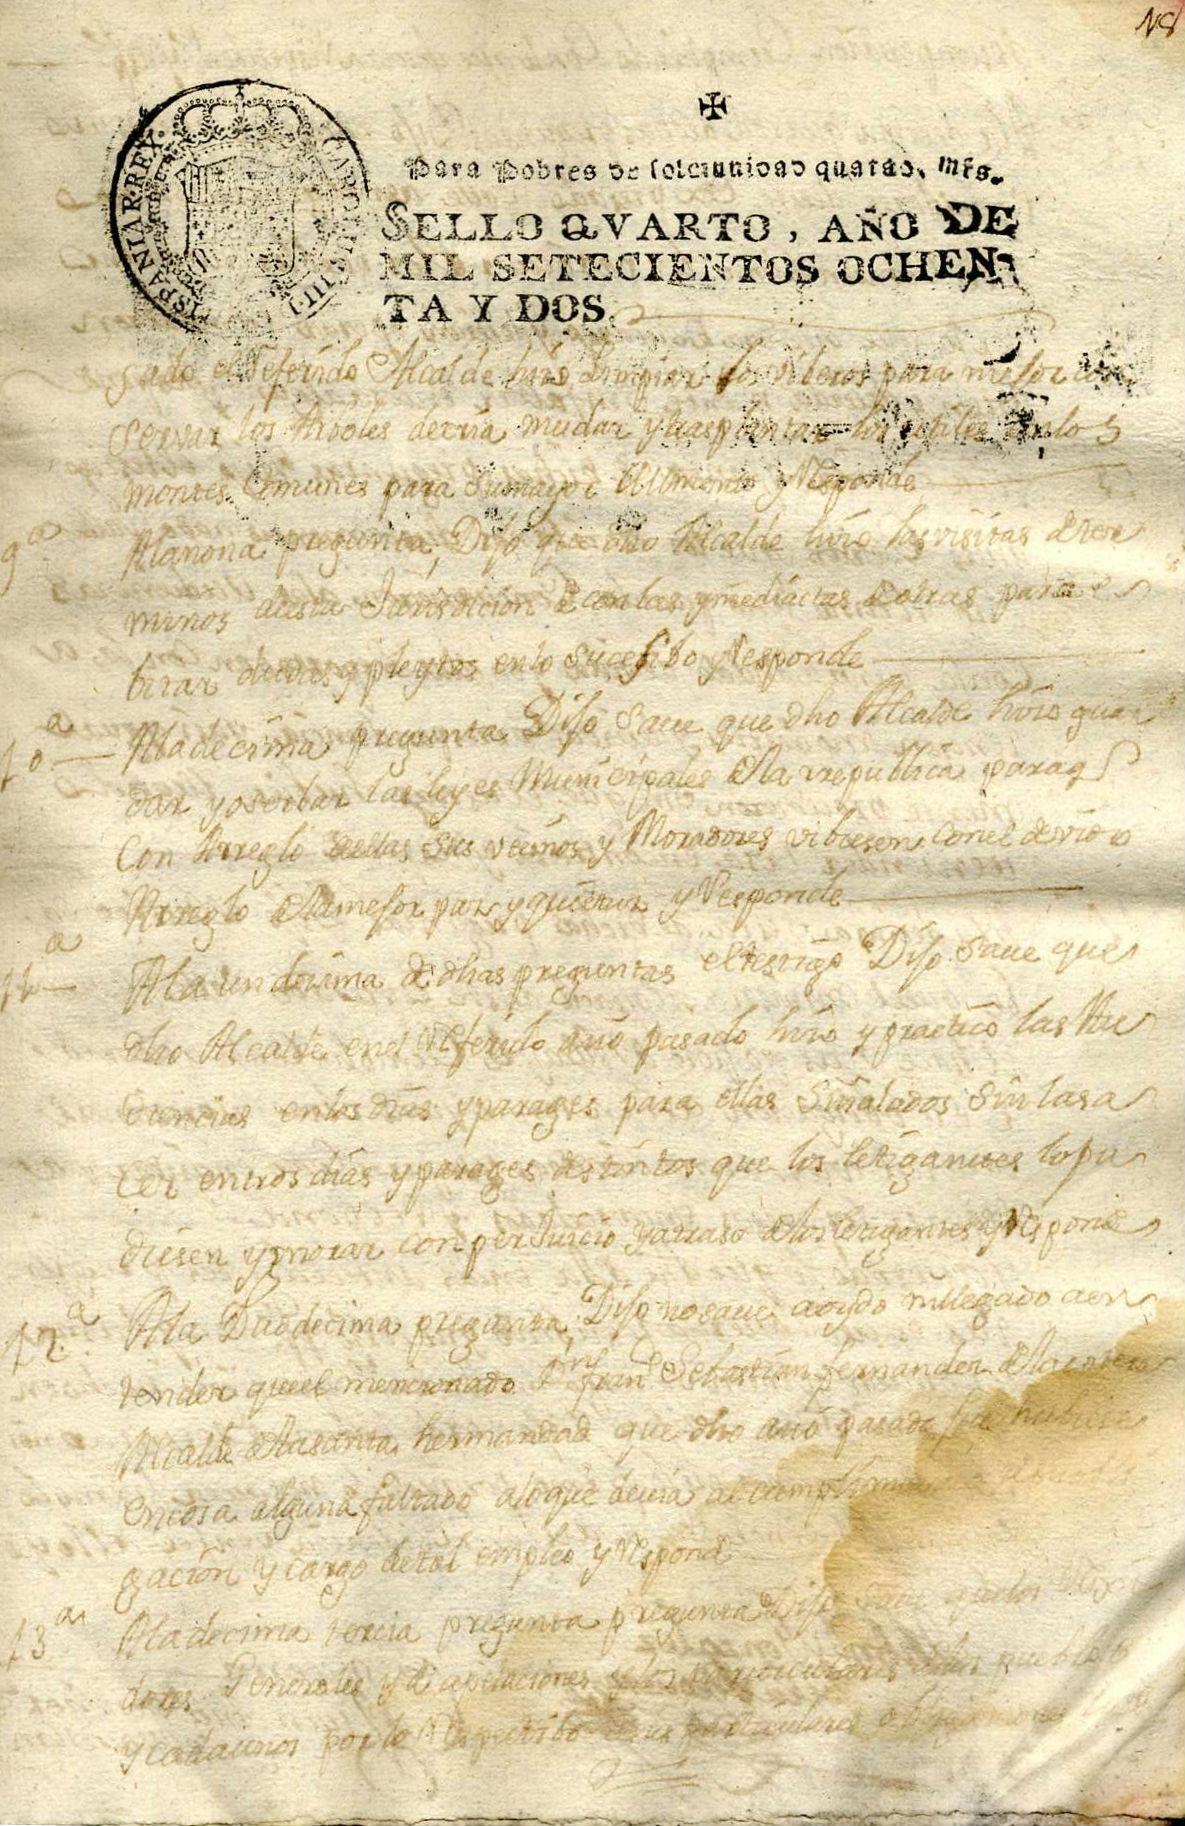 18
CAROLUS III D.G. HISPANIAR REX
✠
Para Pobres de solemnidad quatro mrs.
SELLO QVARTO, AÑO DE
MIL SETECIENTOS OCHEN-
TA Y DOS.
sado el referido Alcalde hizo limpiar los biberos para mejor con
serbar los Arboles devía mudar y trasplantar los en los
montes Comunes para su mayor aumento y Responde
9ª Ala nona pregunta, Dijo que dho Alcalde hizo las visitas de ter
minos de esta Jurisdicion con las ymediatas de otras para e
bitar dudas y pleytos en lo sucesibo y Responde
10ª Ala decima pregunta Dijo save que dho Alcalde hizo guar
dar y oserbar las leyes Municipales de la rrepublica para q
Con Arreglo a ellas sus vecinos y Moradores vibiesen con el devido
Arreglo a la mejor paz y quietud y Responde
11ª Ala undecima de dhas preguntas el testigo Dijo save que
dho Alcalde en el referido año pasado hizo y practico las Au
diencias en los dias y parages para ellas señalados sin las a
cer en otros dias y parages distintos que los letigantes lo pu
diesen ygnorar con perjuicio y atraso de los letigantes y Responde
12ª Ala Duodecima pregunta Dijo no save a oydo ni llegado a en
tender que el mencionado Dn Juan Sebastian fernandez de la
Alcalde de la santa hermandad que dho año pasado fue hubiese
en cosa alguna faltado a lo que devia al cumplimiento
gacion y cargo de tal empleo y Responde
13ª Ala decima tercia pregunta pregunta Dijo save que los
dores Generales y de apelaciones y los particulares de los pueblos
y cada unos por lo Respectibo a sus particulares obligaciones